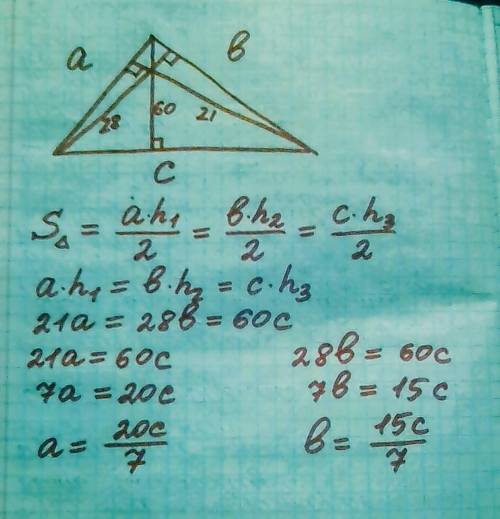 a в
28 60 21
c
S△ = a·h₁/2 = в·h₂/2 = c·h₃/2
a·h₁ = в·h₂ = c·h₃
21a = 28в = 60c
21a = 60c 28в = 60c
7a = 20c 7в = 15c
a = 20c/7 в = 15c/7